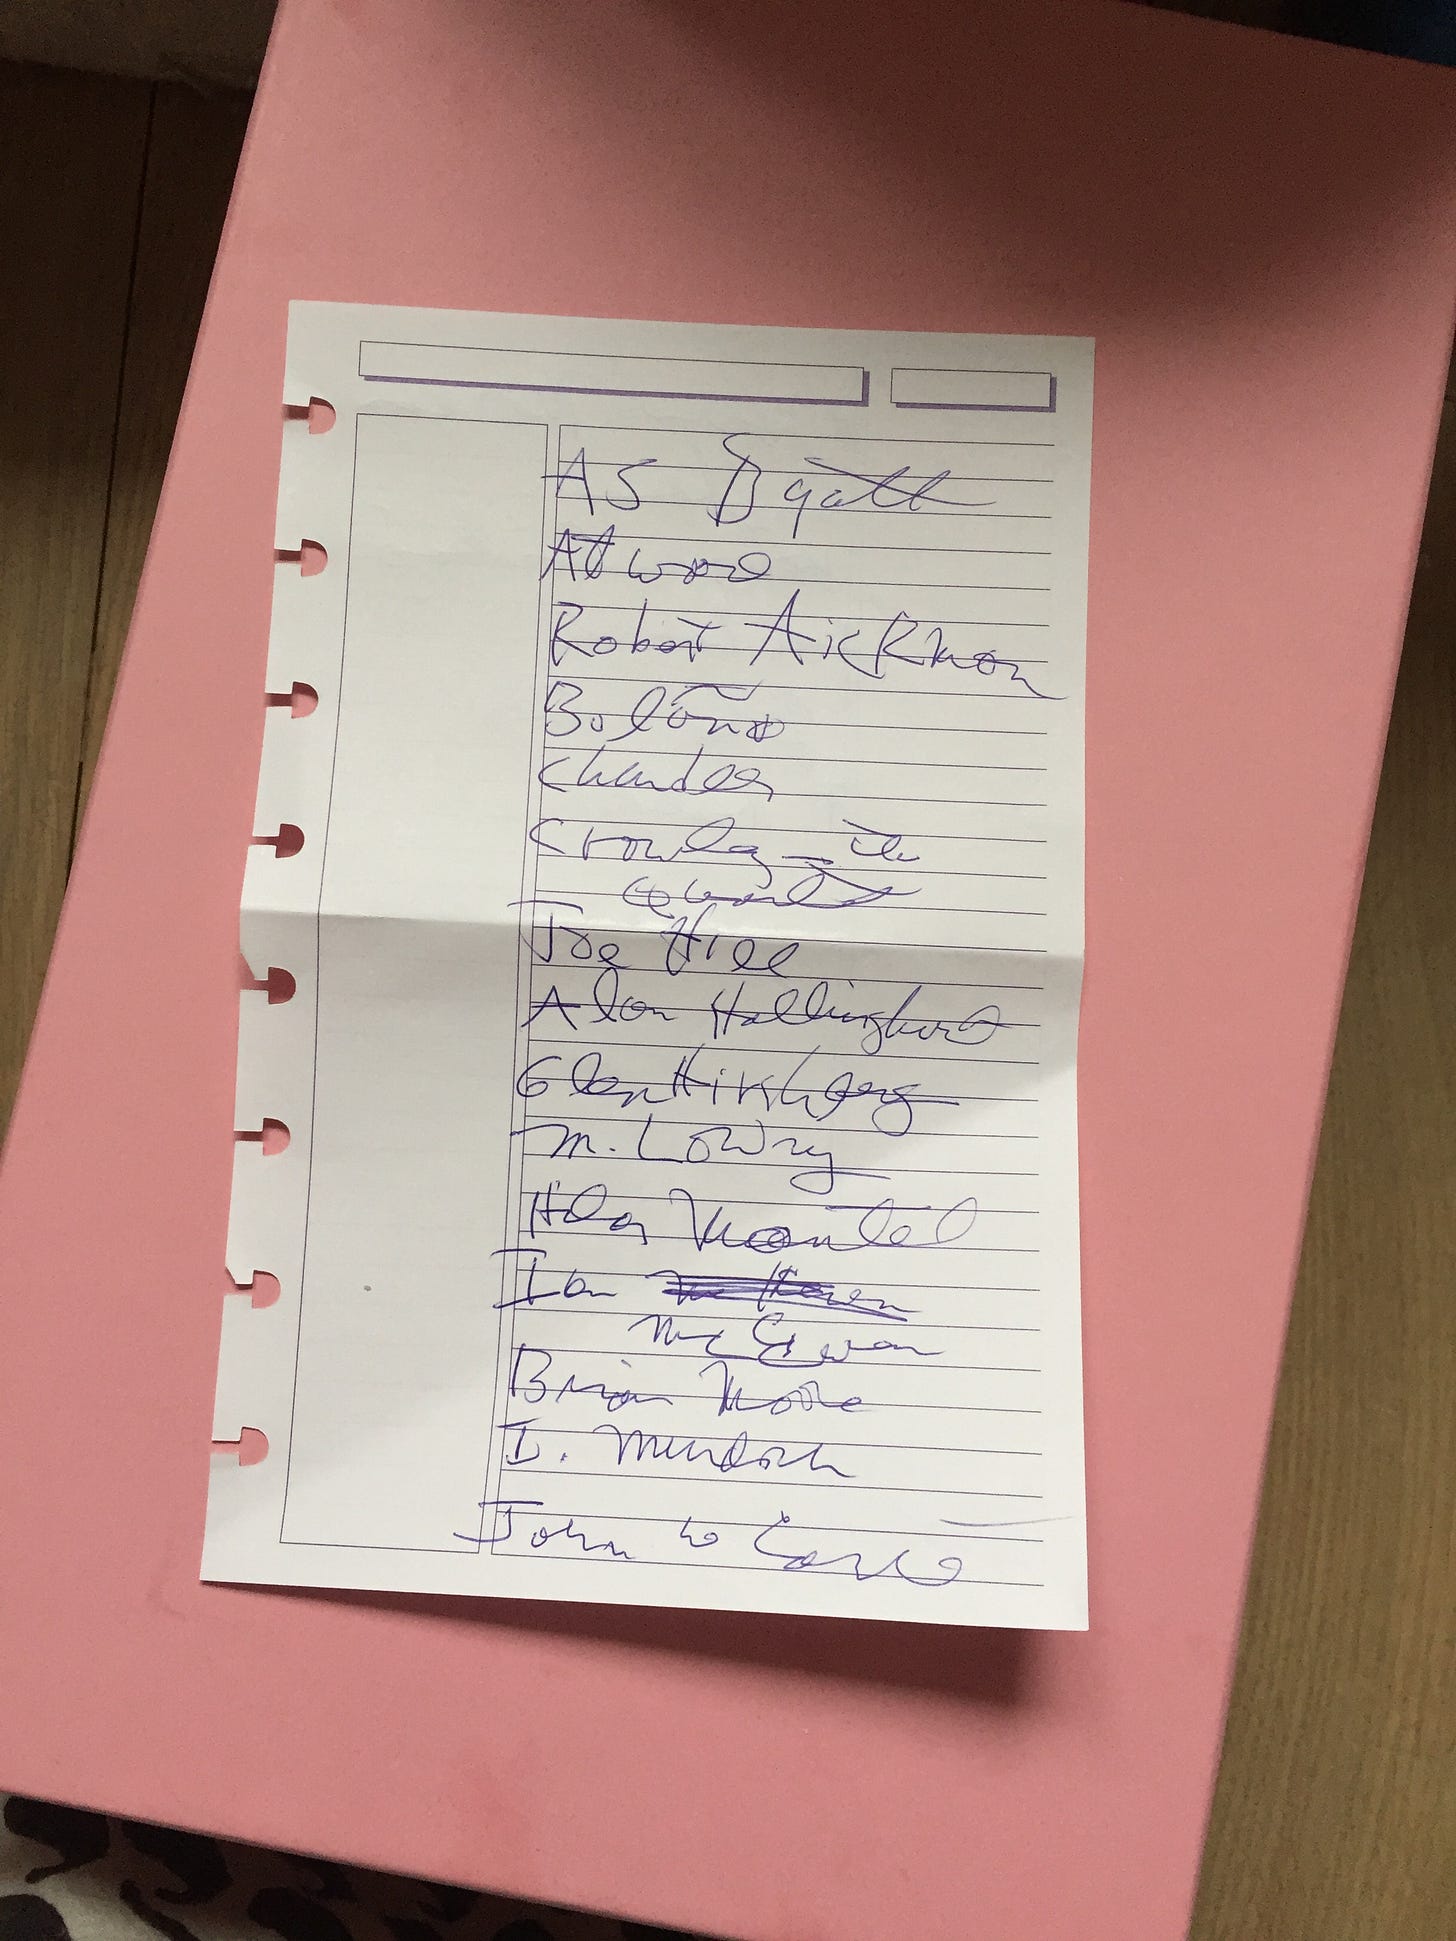 AS Byatt
Atwood
Robert Aickman
Bolaño
Chandler
Crowley – the
Joe Hill
Alan Hollinghurst
Glen Hirshberg
M. Lowry
Hilary Mantel
Ian
McEwan
Brian Moore
I. Murdoch
John le Carré